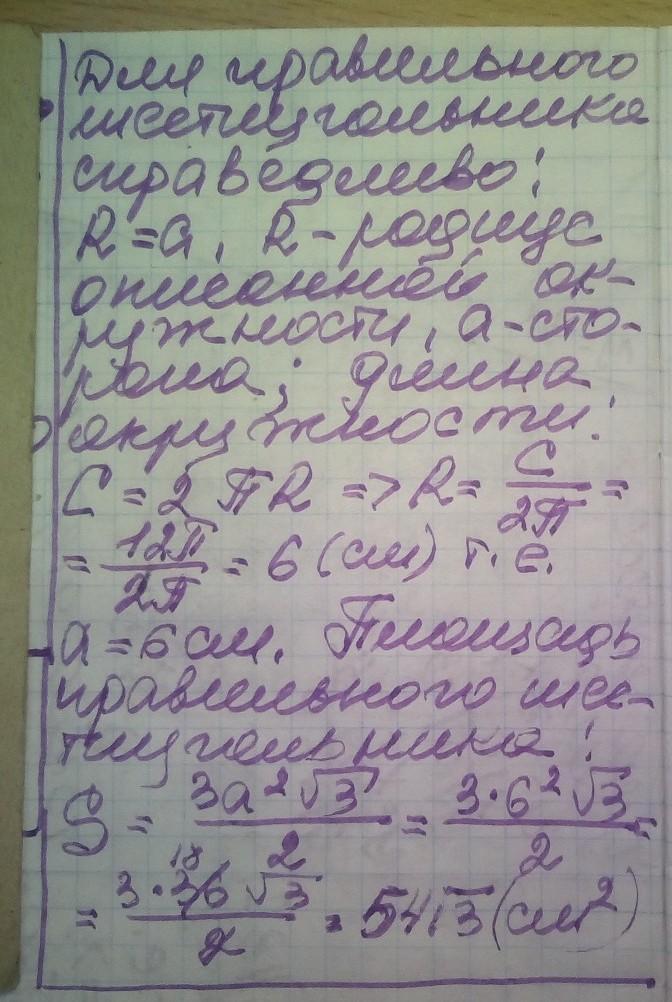 Для правильного
шестиугольника
справедливо:
R = a, R - радиус
описанной ок-
ружности, a - сто-
рона; длина
окружности:
C = 2πR => R = C/2π =
= 12π/2π = 6 (см) т. е.
a = 6 см. Площадь
правильного шес-
тиугольника:
S = 3a²√3/2 = 3·6²√3/2 =
= 3·36√3/2 = 54√3 (см²)